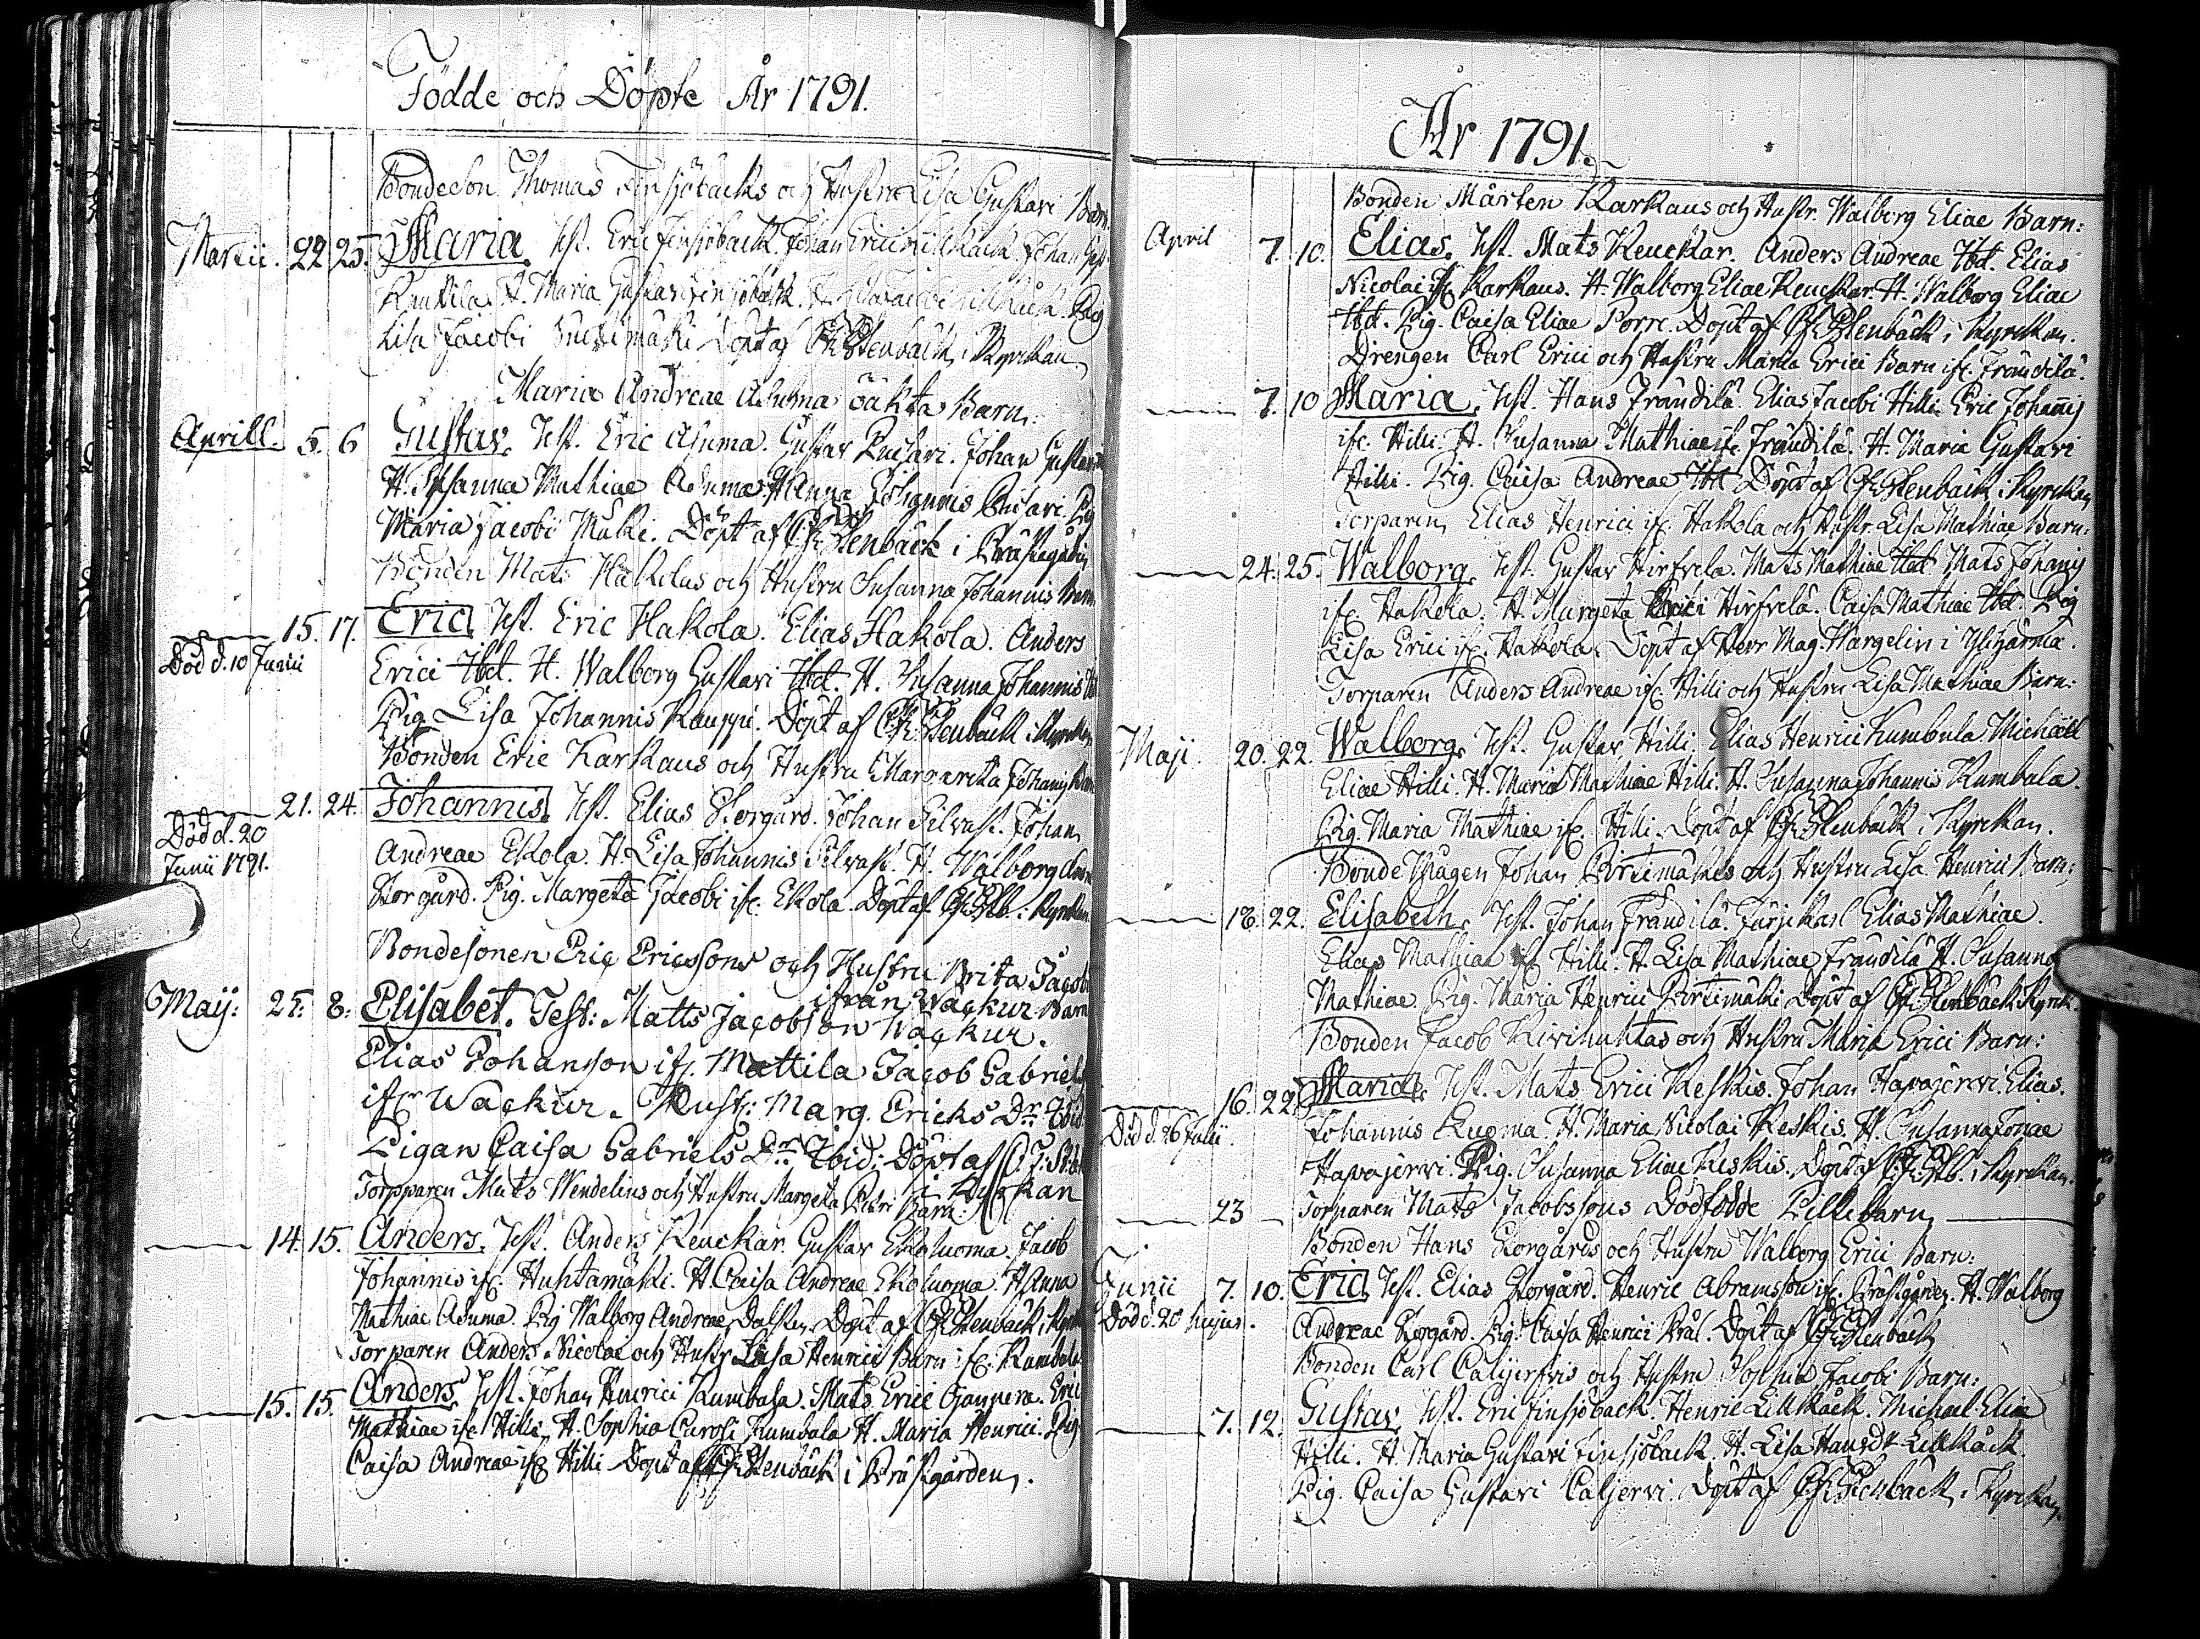 Födde och Döpte År 1791.
Bondeson Thomas Finsjöbacks och Hustru Lisa Gustavi Barn
Martii. 22 25. Maria. Test. Eric Finsjöback. Johan Erici
H. Maria Gustavi Finsjöback.
Lisa Jacobi Döpt af Stenbäck i Kyrckan
Maria Andreae Aduma oäkta Barn.
Aprill. 5. 6 Gustav. Test. Eric Aduma. Gustav Puisari. Johan Gustavi
H. Susanna Mathiae Aduma. H. Anna Johannis Puisari. Pig
Maria Jacobi Mäki. Döpt af Stenbäck i Prästgården
Bonden Mats Hakolas och Hustru Susanna Johannis Barn
15. 17. Eric. Test. Eric Hakola. Elias Hakola. Anders
Död d. 10 Junii
Erici Ibd. H. Walborg Gustavi Ibd. H. Susanna Johannis
Pig. Lisa Johannis Kauppi. Döpt af Stenbäck i Kyrckan
Bonden Eric Karkaus och Hustru Margareta Johannis Barn
21. 24. Johannis. Test. Elias Storgård. Johan Silvast. Johan
Död d. 20
Junii 1791.
Andreae Ekola. H. Lisa Johannis Silvast. H. Walborg
Storgård. Pig. Margeta Jacobi if. Ekola. Döpt af Stb. i Kyrckan
Bondesonen Eric Ericssons och Hustru Brita Jacobs
ifrån Wäckur Barn
Maij: 25: 8: Elisabet. Test: Matts Jacobson Wäckur.
Elias Johanson if. Mattila Jacob Gabriels
if. Wäckur. Hust: Marg. Ericks Dr. Ibid.
Pigan Caisa Gabriels Dr. Ibid: Döpt af
i Kyrkan
Torpparen Mats Wendelius och Hustru Margeta Petri Barn:
14. 15. Anders. Test. Anders Keuckar. Gustav Ekoluoma. Jacob
Johannis if. Huhtamäki. H. Caisa Andreae Ekoluoma. H. Anna
Mathiae Aduma. Pig Walborg Andreae Döpt af Stenbäck i Kyrck
Torparen Anders Nicolai och Hustr. Lisa Henrici Barn if. Kumbula
15. 15. Anders. Test. Johan Henrici Kumbula. Mats Erici Ojanperä. Eric
Mathiae if. Hilli. H. Sophia Caroli Kumbula H. Maria Henrici. Pig.
Caisa Andreae if. Hilli Döpt af Stenbäck i Prästgården.
År 1791.
Bonden Mårten Karkaus och Hustr. Walborg Eliae Barn:
April 7. 10. Elias. Test. Mats Keuckar. Anders Andreae Ibd. Elias
Nicolai if. Karkaus. H. Walborg Eliae Keuckar. H. Walborg Eliae
Ibd. Pig. Caisa Eliae Porre. Döpt af Stenbäck i Kyrckan.
Drengen Carl Erici och Hustru Maria Erici Barn if. Frändilä.
7. 10 Maria. Test. Hans Frändilä Elias Jacobi Hilli. Eric Johannis
if. Hilli. H. Susanna Mathiae if. Frändilä. H. Maria Gustavi
Hilli. Pig. Caisa Andreae Ibd. Döpt af Stenbäck i Kyrckan
Torparen Elias Henrici if. Hakola och Hustr. Lisa Mathiae Barn:
24. 25. Walborg. Test. Gustav Hirfvelä. Mats Mathiae Ibd. Mats Johannis
if. Hakola. H. Margeta Erici Hirfvelä. Caisa Mathiae Ibd. Pig
Lisa Erici if. Hakola. Döpt af Herr Mag. Wargelin i Ylihärmä.
Torparen Anders Andreae if. Hilli och Hustru Lisa Mathiae Barn:
Maji. 20. 22. Walborg. Test. Gustav Hilli. Elias Henrici Kumbula Michaël
Eliae Hilli. H. Maria Mathiae Hilli. H. Susanna Johannis Kumbula.
Pig. Maria Mathiae if. Hilli. Döpt af Stenbäck i Kyrckan.
Bonde Mågen Johan Pirtimäkis och Hustru Lisa Henrici Barn:
18. 22. Elisabeth. Test. Johan Frändilä. Färjekarl Elias Mathiae.
Elias Mathiae if. Hilli. H. Lisa Mathiae Frändilä H. Susanna
Mathiae. Pig. Maria Henrici Pirtimäki Döpt af Stenbäck i Kyrck.
Bonden Jacob Kivihuhtas och Hustru Maria Erici Barn:
16. 22. Maria. Test. Mats Erici Keskis. Johan Hapajervi Elias.
Död d. 26 Julii.
Johannis Ruoma. H. Maria Nicolai Keskis. H. Susanna Jonae
Hapajervi. Pig. Susanna Eliae Keskis. Döpt af Stb. i Kyrckan.
23 Torparen Mats Jacobssons Dödfödde Pillebarn
Bonden Hans Storgårds och Hustru Walborg Erici Barn:
Junii 7. 10. Eric. Test. Elias Storgård. Henric Abramsson if. Prästgården. H. Walborg
Död d. 20 hujus.
Andreae Storgård. Pig. Caisa Henrici Döpt af Stenbäck
Bonden Carl Calijerfvis och Hustru Sophia Jacobi Barn:
7. 12. Gustav. Test. Eric Finsjöback. Henric Lillkåck. Michael Eliae
Hilli. H. Maria Gustavi Finsjöback. H. Lisa Hansdr Lillkåck.
Pig. Caisa Gustavi Calijervi. Döpt af Stenbäck i Kyrckan.